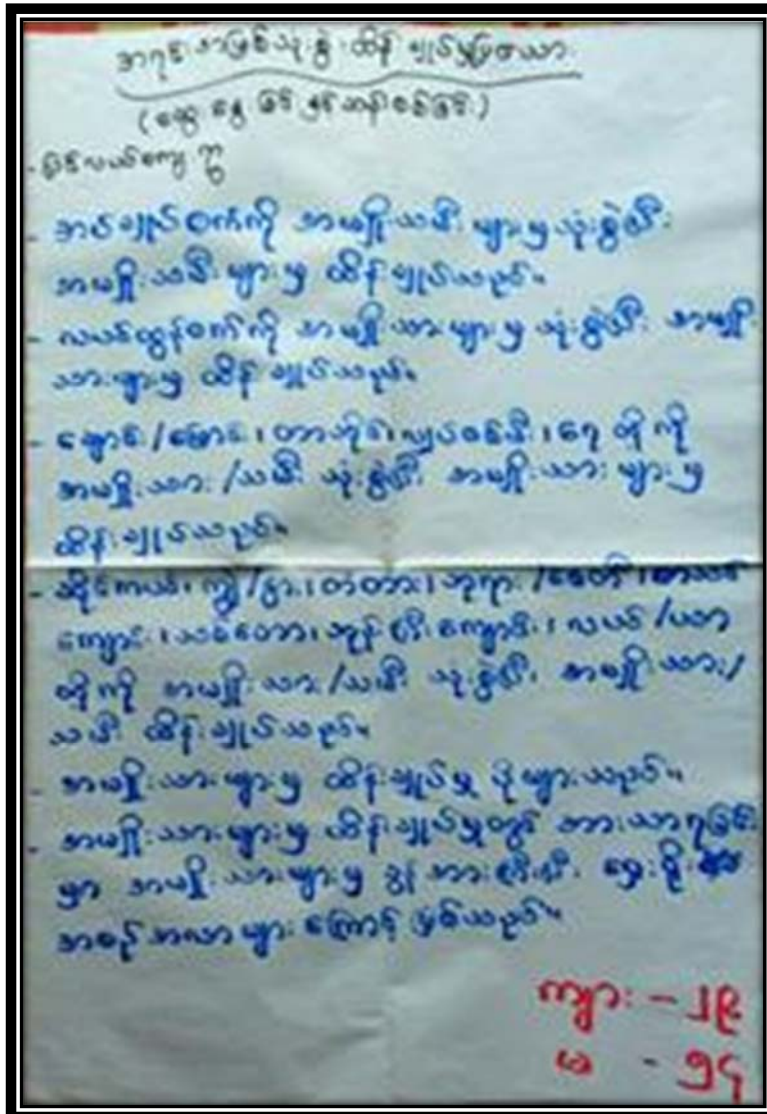 အရင်းအမြစ်သုံးစွဲ ထိန်းချုပ်မှုပြဇယား
(ဆွေးနွေးခြင်းနှင့်ဆန်းစစ်ခြင်း)
- မြင်းလယ်ကျေးရွာ
- အပ်ချုပ်စက်ကို အမျိုးသမီးများမှသုံးစွဲပြီး
အမျိုးသမီးများမှ ထိန်းချုပ်သည်။
- လယ်ထွန်စက်ကို အမျိုးသားများမှ သုံးစွဲပြီး အမျိုး
သားများမှ ထိန်းချုပ်သည်။
- ချောင်း/မြောင်း၊ တာဘိုင်၊ လျှပ်စစ်မီး၊ ရေ တို့ကို
အမျိုးသား/သမီး သုံးစွဲပြီး အမျိုးသားများမှ
ထိန်းချုပ်သည်။
- ဆိုင်ကယ်၊ ကျွဲ/နွား၊ တံတား၊ ဘုရား/စေတီ၊ စာသင်
ကျောင်း၊ သစ်တော၊ ဘုန်းကြီးကျောင်း၊ လယ်/ယာ
တို့ကို အမျိုးသား/သမီး သုံးစွဲပြီး အမျိုးသား/
သမီး ထိန်းချုပ်သည်။
- အမျိုးသားများမှ ထိန်းချုပ်မှု ပိုများသည်။
- အမျိုးသားများမှ ထိန်းချုပ်မှုတွင် အားသာရခြင်း
မှာ အမျိုးသားများမှ ခွန်အားကြီးပြီး ရှေးရိုး
အစဉ်အလာများကြောင့် ဖြစ်သည်။
ကျား - ၂၉
မ - ၅၄